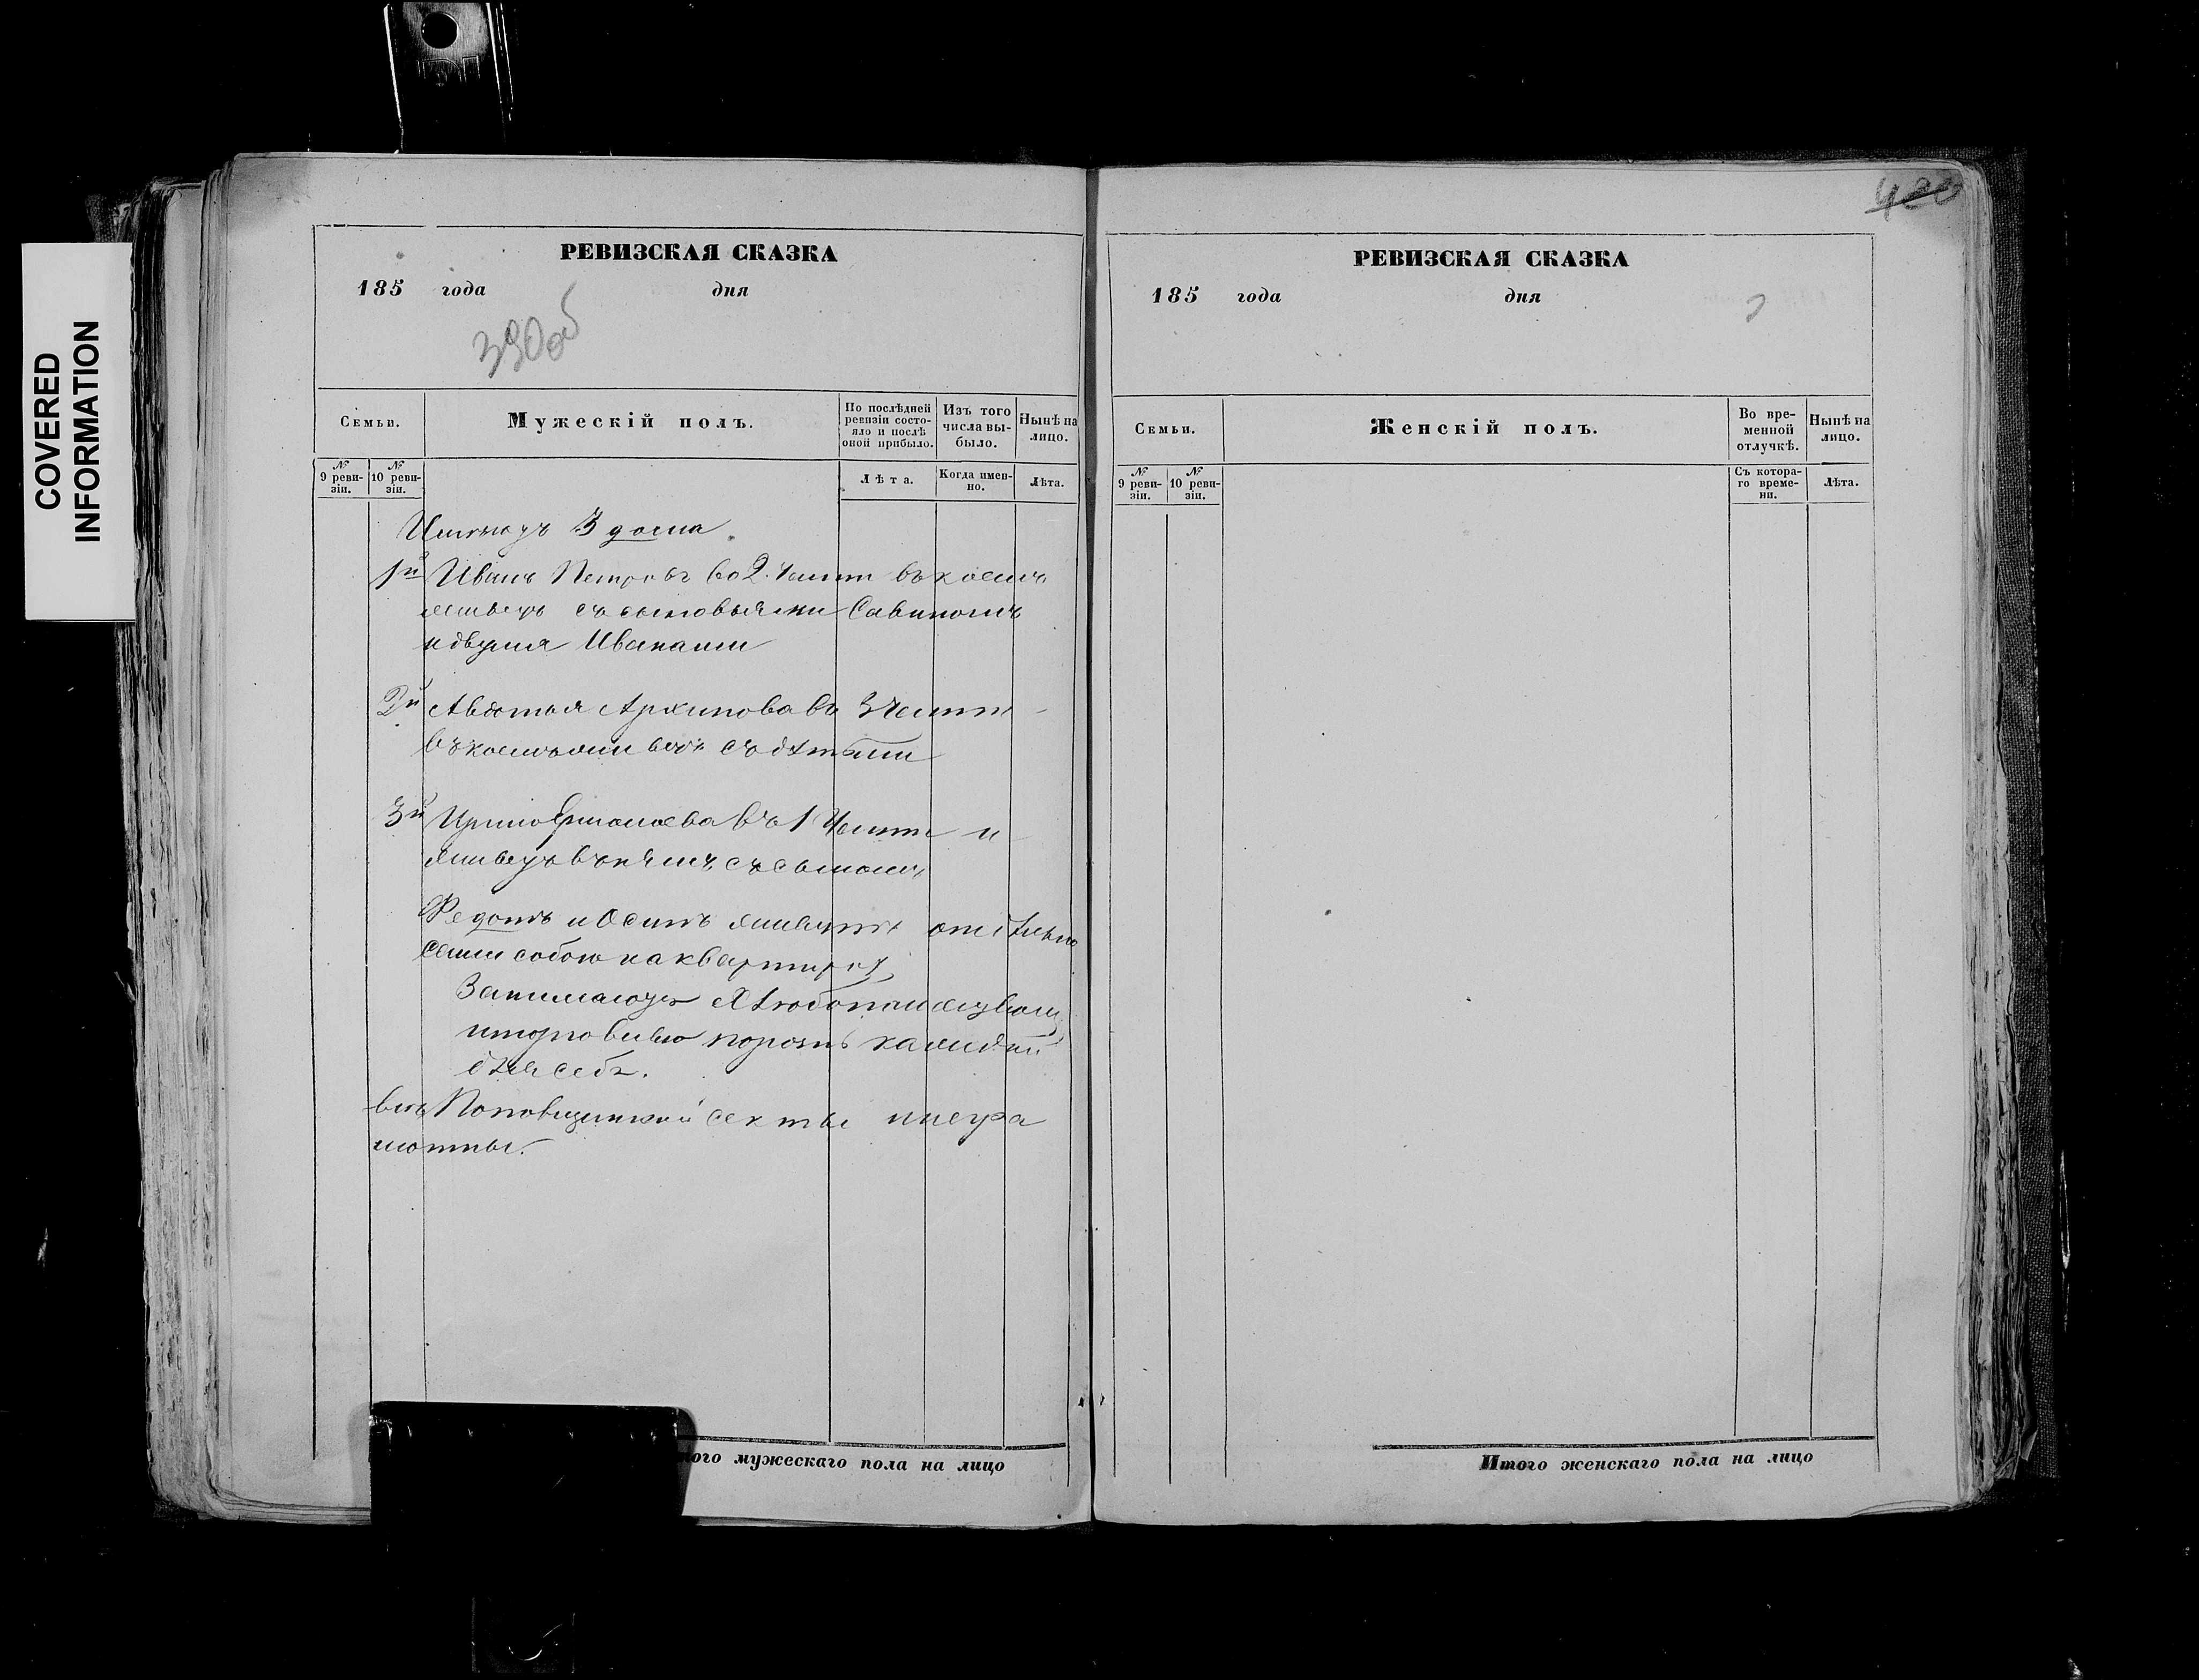 COVERED
INFORMATION
РЕВИЗСКАЯ СКАЗКА
185 года дня
390об
Семьи.
Мужескій полъ.
По послѣдней ревизіи состояло и послѣ оной прибыло.
Изъ того числа выбыло.
Нынѣ на лицо.
№ 9 ревизіи.
№ 10 ревизіи.
Лѣта.
Когда именно.
Лѣта.
Имѣютъ 3 дома
1й Иванъ Петровъ во 2. Части въ коемъ
живетъ съ сыновьями Савиномъ
и двумя Иванами
2й Авдотья Архипова въ 3 Части
въ коемъ живетъ съ дѣтьми
3й въ 1 Части и
живетъ въ нѣмъ съ сыномъ
Федотъ и Осипъ живутъ отдѣльно
сами собою на квартирѣ
Занимаютъ Хлѣбопашествомъ
и торговлею порознь каждый
для себя.
всѣ Поповщинской секты и негра
мотны.
Итого мужескаго пола на лицо
400
РЕВИЗСКАЯ СКАЗКА
185 года дня
Семьи.
Женскій полъ.
Во временной отлучкѣ.
Нынѣ на лицо.
№ 9 ревизіи.
№ 10 ревизіи.
Съ котораго времени.
Лѣта.
Итого женскаго пола на лицо